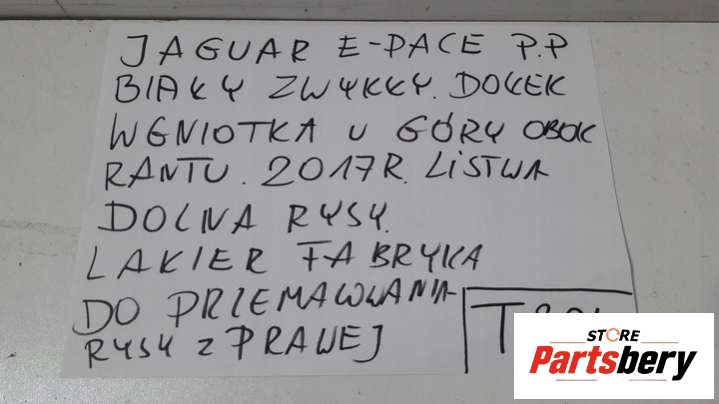 JAGUAR E-PACE P.P
BIAŁY ZWYKŁY. DOŁEK
WGNIOTKA U GÓRY OBOK
RANTU. 2017R. LISTWA
DOLNA RYSY.
LAKIER FABRYKA
DO PRZEMALOWANIA
RYSY Z PRAWEJ
STORE
Partsbery